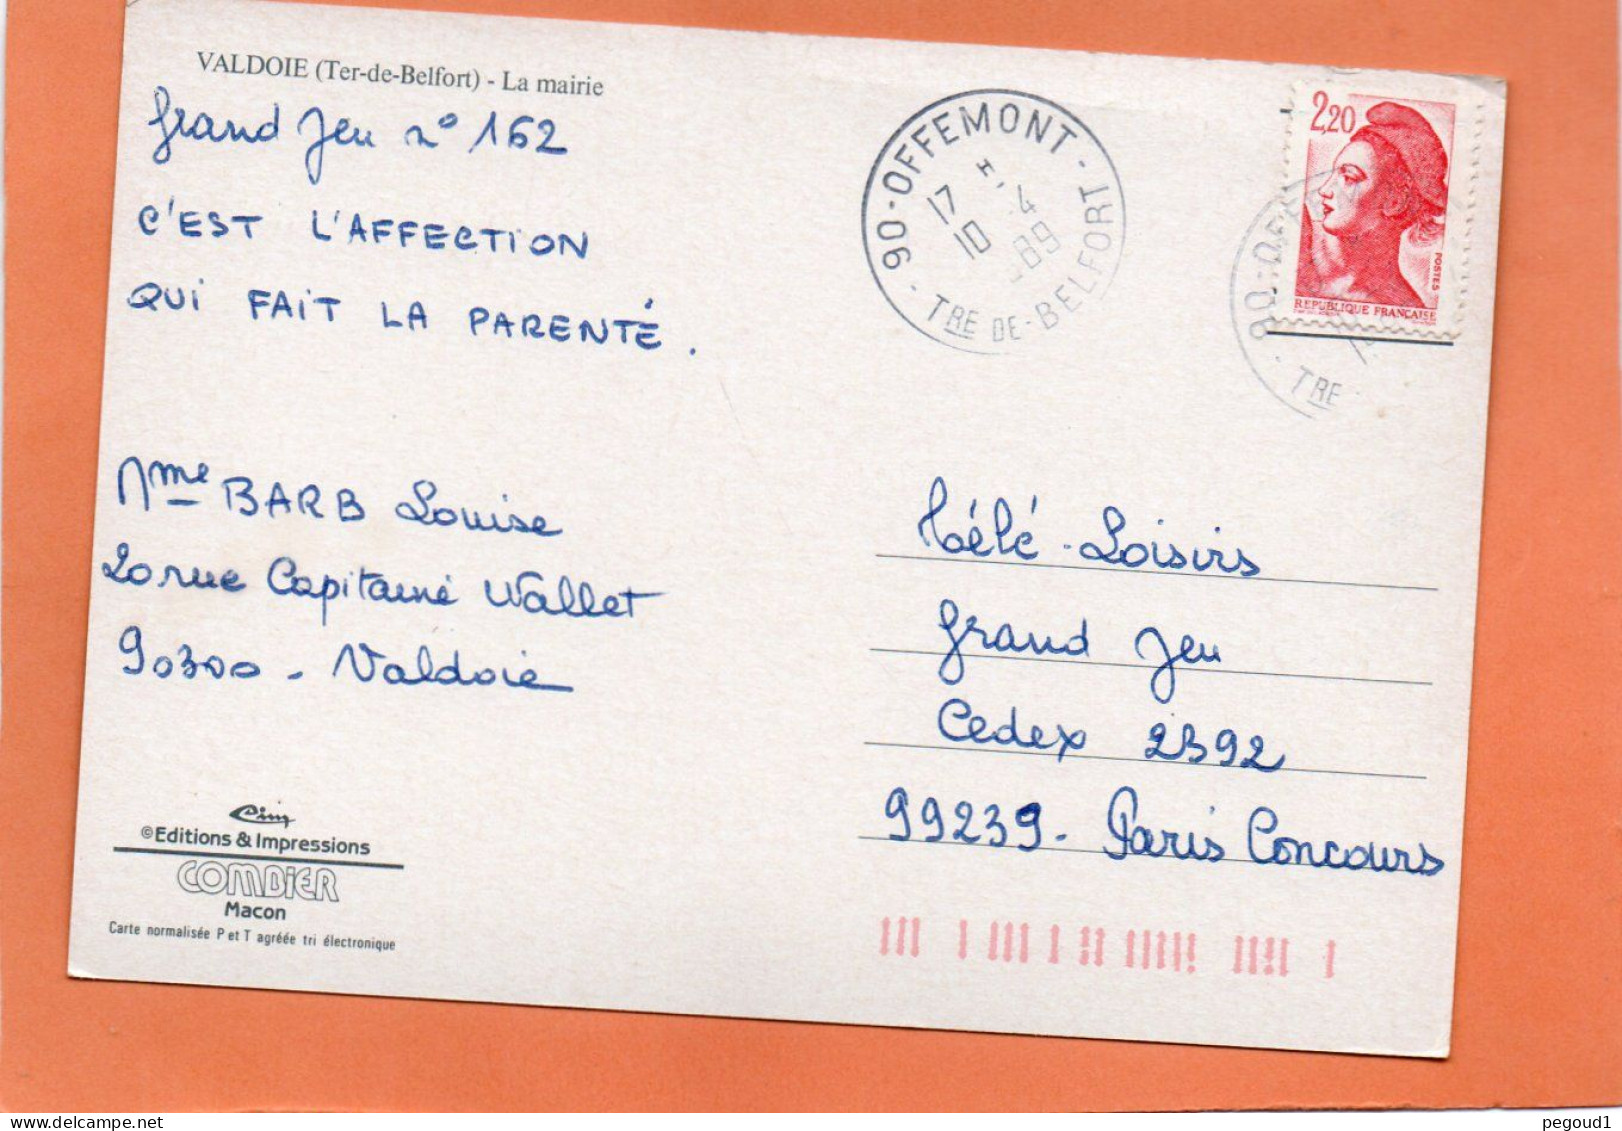 VALDOIE (Ter-de-Belfort) - La mairie
Grand Jeu n° 162
C'EST L'AFFECTION
QUI FAIT LA PARENTÉ.
Mme BARB Louise
20 rue Capitaine Wallet
90300 - Valdoie
Cim
©Editions & Impressions
COMBIER
Macon
Carte normalisée P et T agréée tri électronique
90-OFFEMONT
17 H
10 -4
89
TRE DE-BELFORT
2,20
POSTES
REPUBLIQUE FRANÇAISE
90-OFFE
TRE
Télé-Loisirs
Grand Jeu
Cedex 2392
99239 - Paris Concours
pegoud1